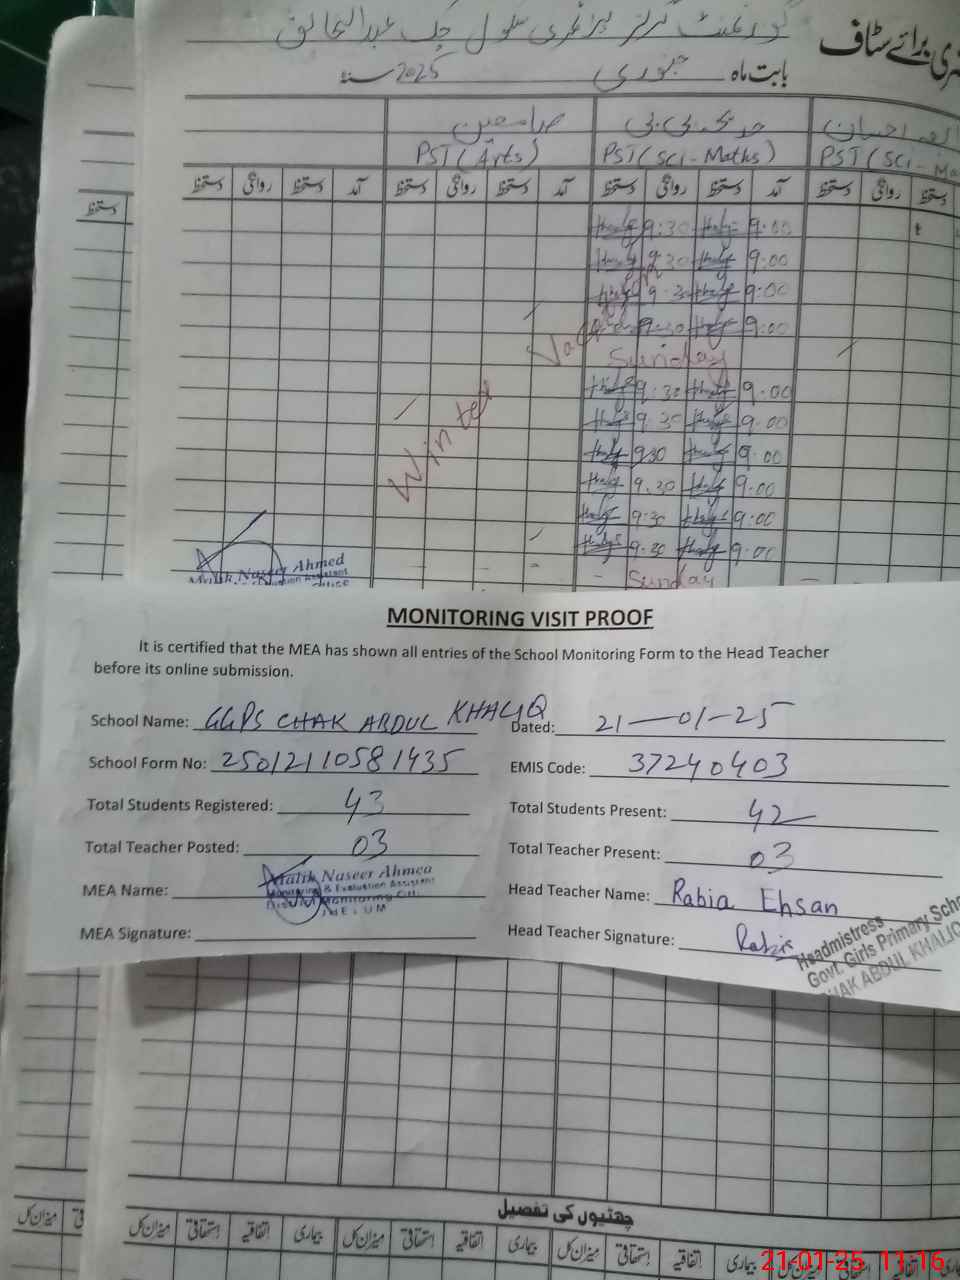 گورنمنٹ گرلز پرائمری سکول چک عبدالخالق
حاضری برائے سٹاف
بابت ماہ جنوری 2025 سنہ
احسان
PST (Sci - Ma
خدیجہ بی بی
PST (Sci - Maths)
PST (Arts)
دستخط روانگی دستخط
آمد دستخط روانگی دستخط
آمد دستخط روانگی دستخط
آمد دستخط روانگی دستخط
دستخط
9:30 9:00
9:30 9:00
9:30 9:00
9:30 9:00
Sunday
9:30 9:00
9:30 9:00
9:30 9:00
9:30 9:00
9:30 9:00
9:30 9:00
Sunday
Winter
Malik Naseer Ahmed
MONITORING VISIT PROOF
It is certified that the MEA has shown all entries of the School Monitoring Form to the Head Teacher
before its online submission.
School Name: GGPS CHAK ABDUL KHALIQ Dated: 21-01-25
School Form No: 25012110581435 EMIS Code: 37240403
Total Students Registered: 43 Total Students Present: 42
Total Teacher Posted: 03 Total Teacher Present: 03
MEA Name: Malik Naseer Ahmed Head Teacher Name: Rabia Ehsan
Monitoring & Evaluation Assistant
District Monitoring Office
JHELUM
MEA Signature: Head Teacher Signature: Rabia
Headmistress
Govt. Girls Primary School
CHAK ABDUL KHALIQ
چھٹیوں کی تفصیل
بیماری اتفاقیہ استحقاقی میزان کل بیماری اتفاقیہ استحقاقی میزان کل بیماری اتفاقیہ استحقاقی میزان کل
میزان کل
21-01-25 11:16